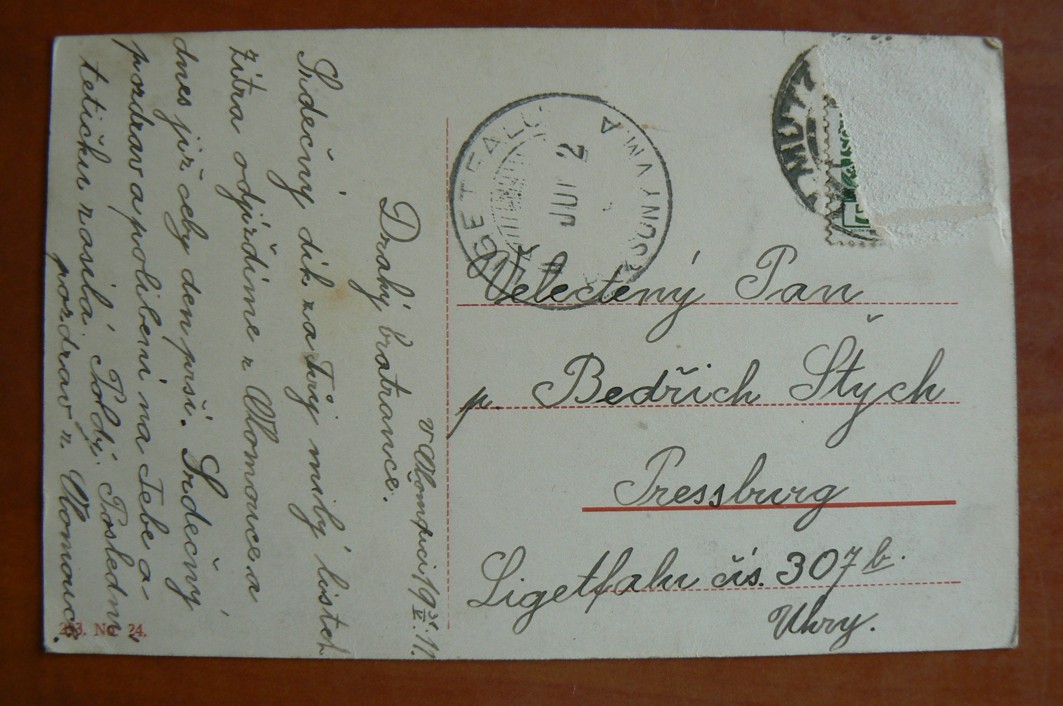 v Olomouci 19 31/V 11.
Drahý bratrance.
Srdečný dík za Tvůj milý lístek
Zítra odjíždíme z Olomouce a
dnes již celý den prší. Srdečný
pozdrav a políbení na Tebe a
tetičku zasílá Poldy. Poslední
pozdrav z Olomouce.
233. No 24.
LIGETFALU
POZSONY VM
A
JUN 2
Velectěný Pan
p. Bedřich Štych
Pressburg
Ligetfalu čís. 307 b.
Uhry.